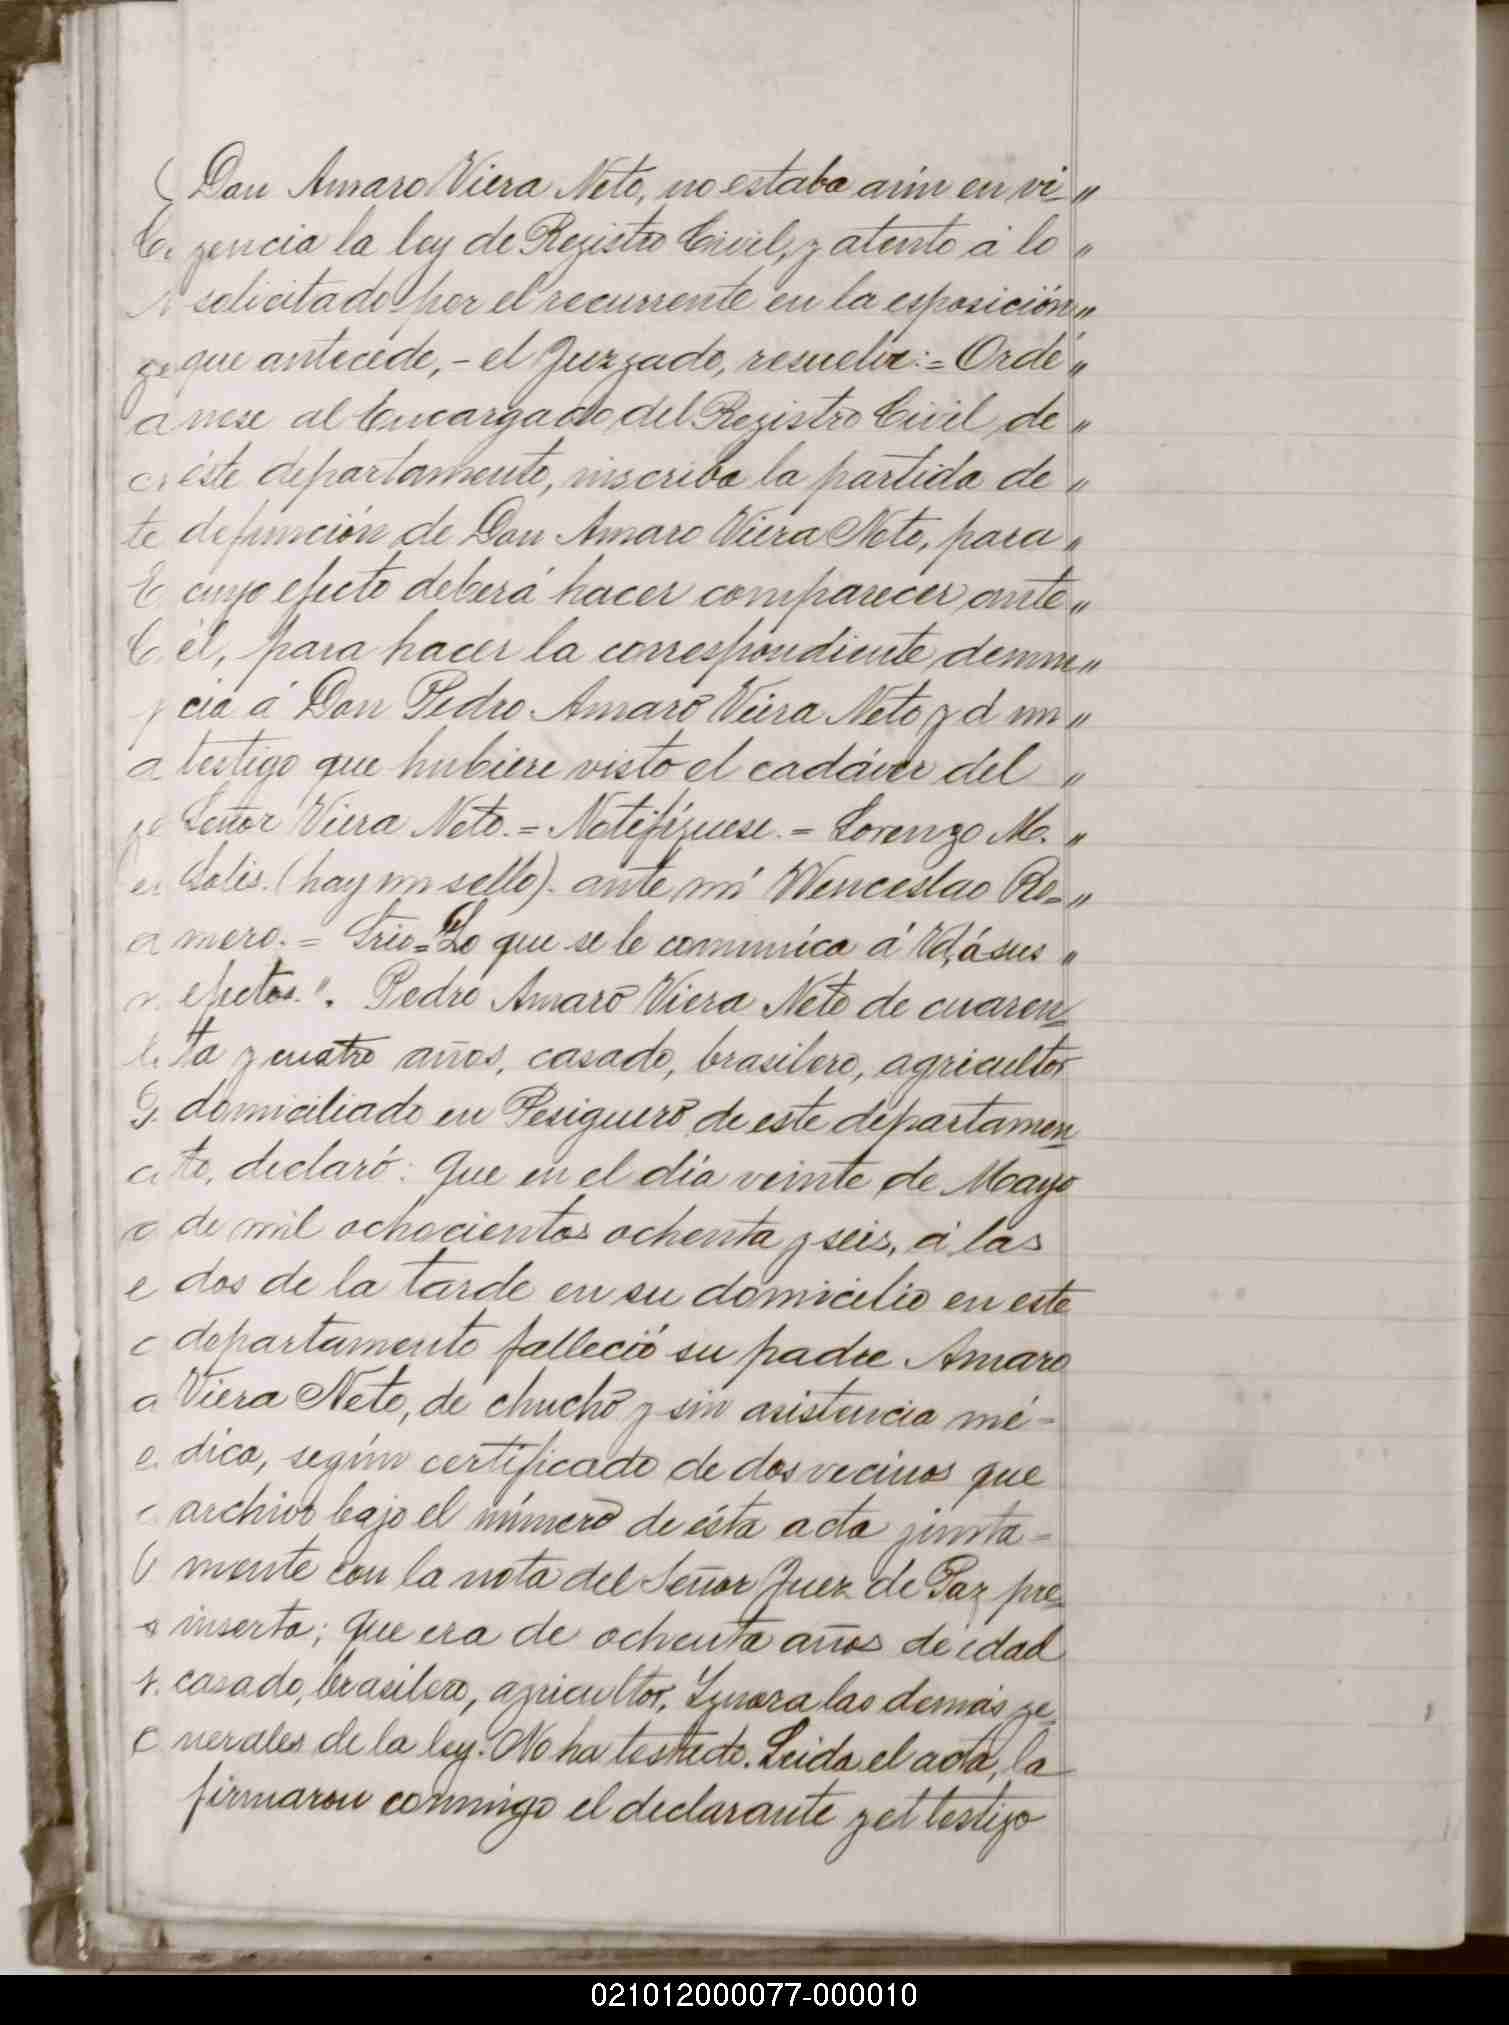 Don Amaro Viera Neto, no estaba aún en vi- "
gencia la ley de Registro Civil, y atento á lo "
solicitado por el recurrente en la esposición "
que antecede, - el Juzgado, resuelve: = Ordé "
nese al Encargado del Registro Civil de "
éste departamento, inscriba la partida de "
defunción de Don Amaro Viera Neto, para "
cuyo efecto deberá hacer comparecer ante "
él, para hacer la correspondiente denun "
cia á Don Pedro Amaro Viera Neto y á un "
testigo que hubiere visto el cadáver del "
Señor Viera Neto. = Notifíquese. = Lorenzo M. "
Solis. (hay un sello). ante mí Wenceslao Ro- "
mero. = Srio = Lo que se le comunica á Vd, á sus "
efectos.". Pedro Amaro Viera Neto de cuaren-
ta y cuatro años, casado, brasilero, agricultor
domiciliado en Pesiguero de este departamen
to, declaró: Que en el día veinte de Mayo
de mil ochocientos ochenta y seis, á las
dos de la tarde en su domicilio en este
departamento falleció su padre Amaro
Viera Neto, de chucho y sin asistencia mé-
dica, según certificado de dos vecinos que
archivo bajo el número de ésta acta junta-
mente con la nota del Señor Juez de Paz pre-
inserta; que era de ochenta años de edad
casado, brasilero, agricultor. Ignora las demás ge-
nerales de la ley. No ha testado. Leida el acta, la
firmaron conmigo el declarante y el testigo
021012000077-000010